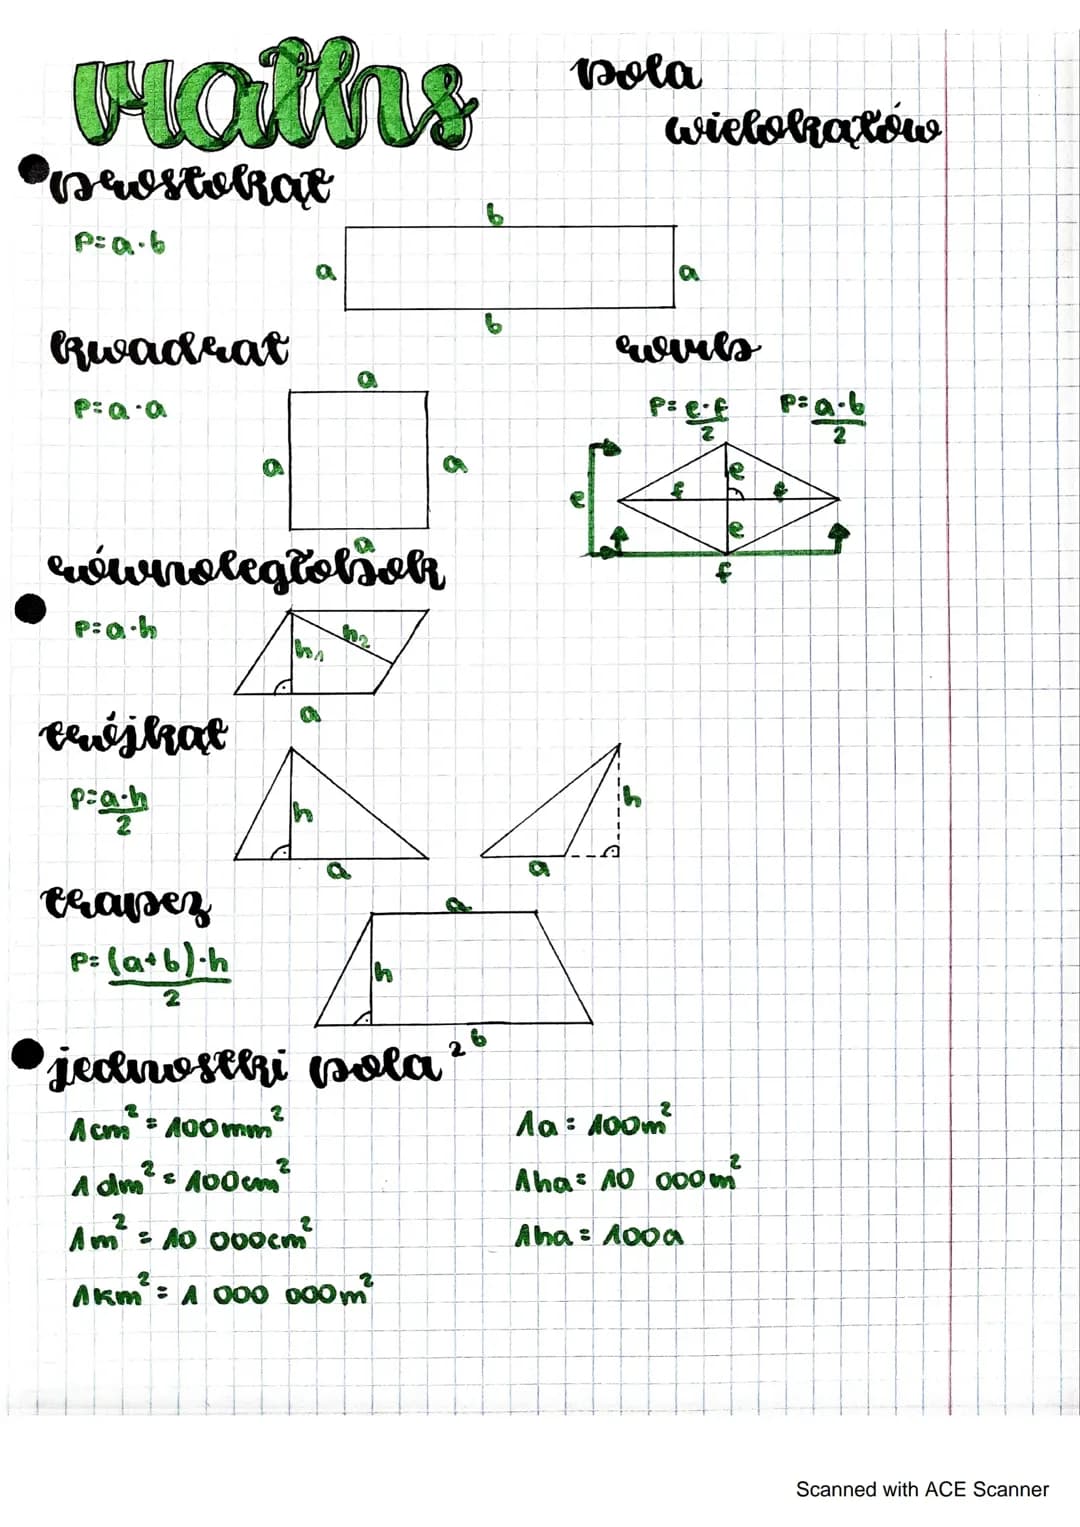 maths
pola
wielokątów
prostokąt
P=a·b
b
a
a
b
kwadrat
P=a·a
a
a
a
a
romb
P=e·f/2 P=a·b/2
e
f
f
e
e
f
równoległobok
P=a·h
h₁
h₂
a
trójkąt
P=a·h/2
h
a
h
a
trapez
P=(a+b)·h/2
a
h
b
jednostki pola ²
1cm²=100mm²
1dm²=100cm²
1m²=10 000cm²
1km²=1 000 000m²
1a=100m²
1ha=10 000m²
1ha=100a
Scanned with ACE Scanner